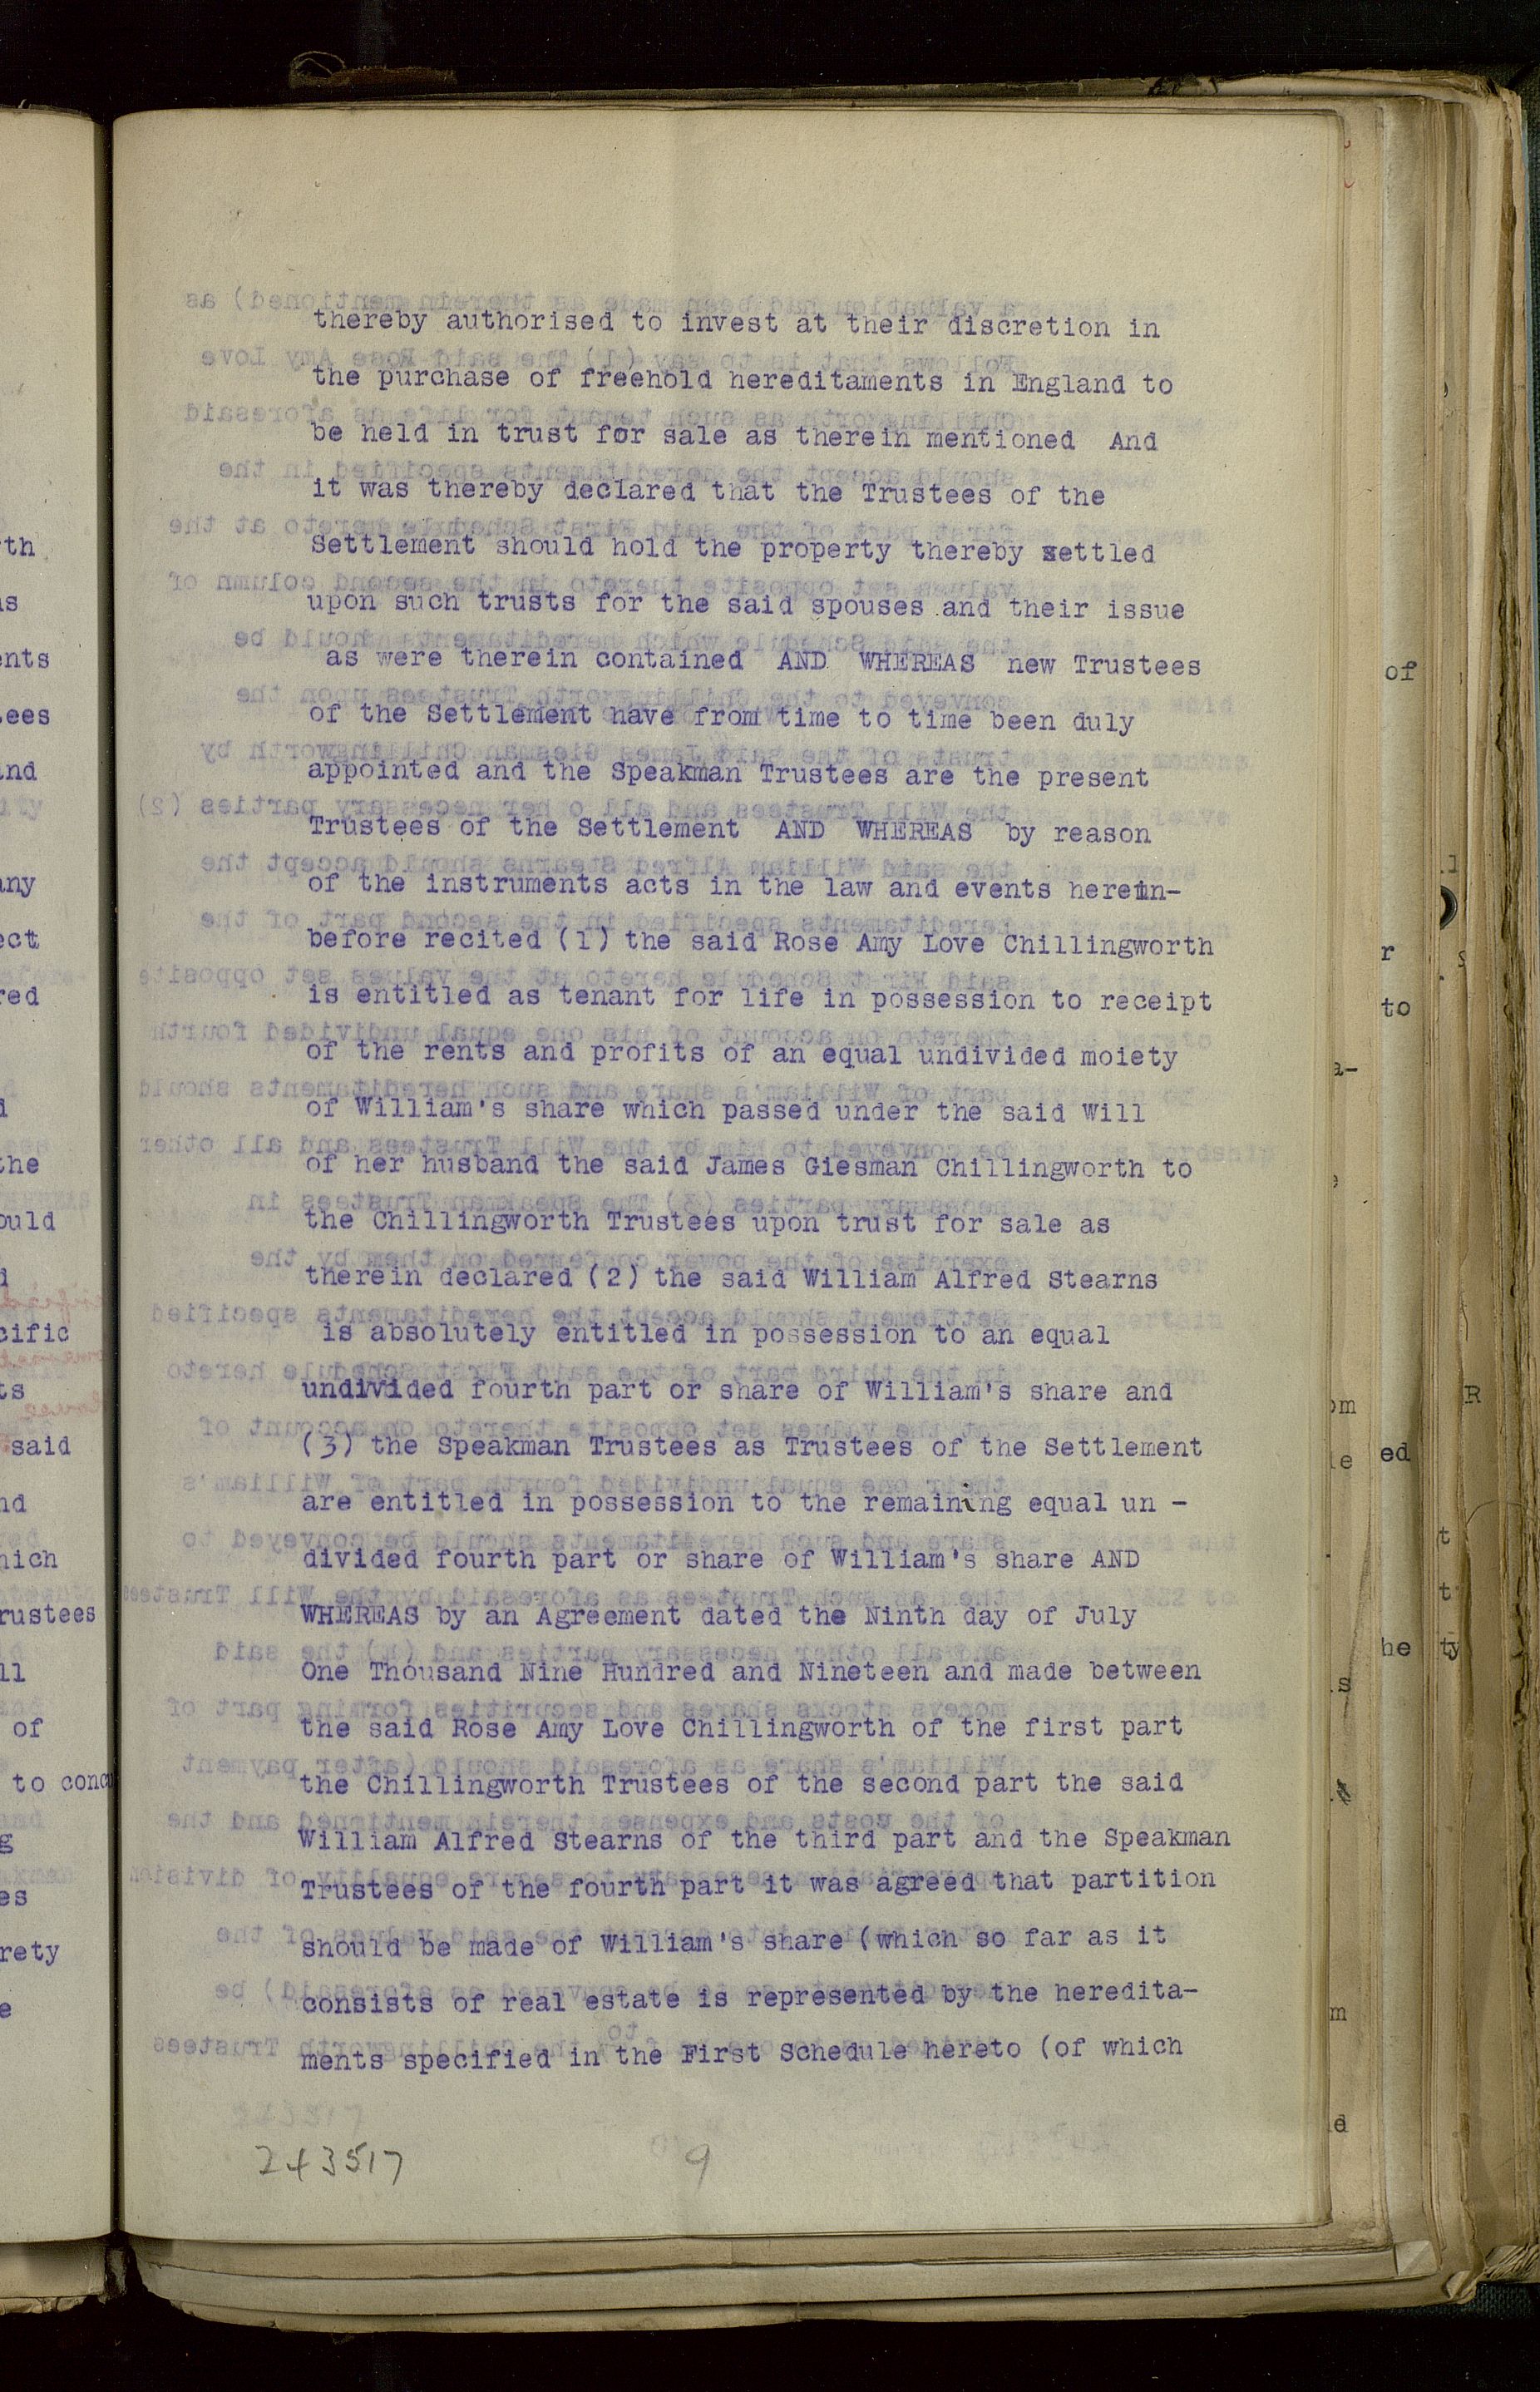 thereby authorised to invest at their discretion in
the purchase of freehold hereditaments in England to
be held in trust for sale as therein mentioned And
it was thereby declared that the Trustees of the
Settlement should hold the property thereby settled
upon such trusts for the said spouses and their issue
as were therein contained AND WHEREAS new Trustees
of the Settlement have from time to time been duly
appointed and the Speakman Trustees are the present
Trustees of the Settlement AND WHEREAS by reason
of the instruments acts in the law and events herein-
before recited (1) the said Rose Amy Love Chillingworth
is entitled as tenant for life in possession to receipt
of the rents and profits of an equal undivided moiety
of William's share which passed under the said Will
of her husband the said James Giesman Chillingworth to
the Chillingworth Trustees upon trust for sale as
therein declared (2) the said William Alfred Stearns
is absolutely entitled in possession to an equal
undivided fourth part or share of William's share and
(3) the Speakman Trustees as Trustees of the Settlement
are entitled in possession to the remaining equal un -
divided fourth part or share of William's share AND
WHEREAS by an Agreement dated the Ninth day of July
One Thousand Nine Hundred and Nineteen and made between
the said Rose Amy Love Chillingworth of the first part
the Chillingworth Trustees of the second part the said
William Alfred Stearns of the third part and the Speakman
Trustees of the fourth part it was agreed that partition
should be made of William's share (which so far as it
consists of real estate is represented by the heredita-
ments specified in the First Schedule hereto (of which
243517 9